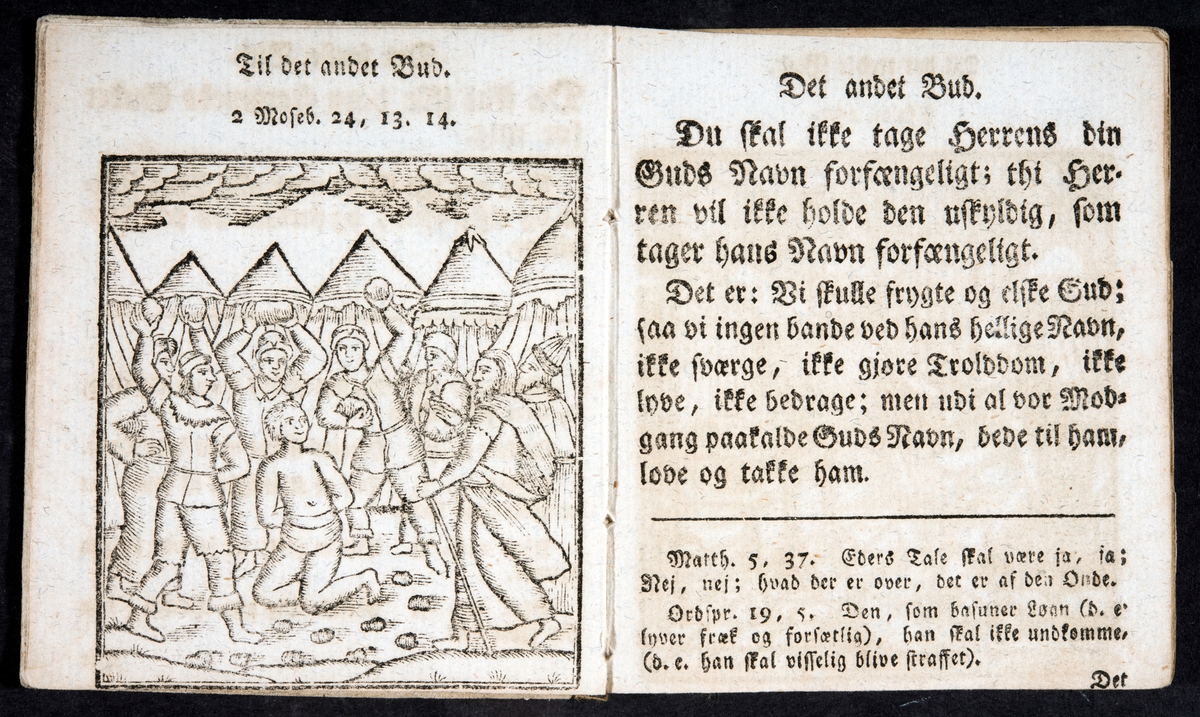 Til det andet Bud.
2 Moseb. 24, 13. 14.
Det andet Bud.
Du skal ikke tage Herrens din
Guds Navn forfængeligt; thi Her-
ren vil ikke holde den uskyldig, som
tager hans Navn forfængeligt.
Det er: Vi skulle frygte og elske Gud;
saa vi ingen bande ved hans hellige Navn,
ikke sværge, ikke gjøre Trolddom, ikke
lyve, ikke bedrage; men udi al vor Mod-
gang paakalde Guds Navn, bede til ham,
love og takke ham.
Matth. 5, 37. Eders Tale skal være ja, ja;
Nej, nej; hvad der er over, det er af den Onde.
Ordspr. 19, 5. Den, som basuner Løgn (d. e.
lyver fræk og forsætlig), han skal ikke undkomme,
(d. e. han skal visselig blive straffet).
Det